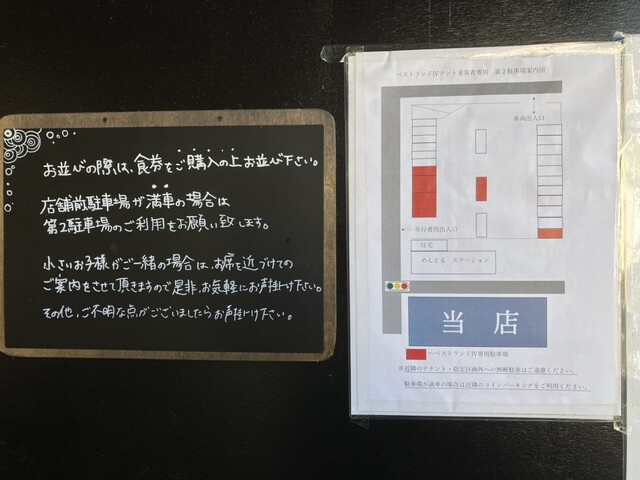 お並びの際は、食券をご購入の上お並び下さい。
店舗前駐車場が満車の場合は
第2駐車場のご利用をお願い致します。
小さいお子様がご一緒の場合は、お席を近づけての
ご案内をさせて頂きますので是非、お気軽にお声掛け下さい。
その他、ご不明な点がございましたらお声掛け下さい。
ベストランドⅣテナント来客者専用 第2駐車場案内図
車両出入口
←歩行者用出入口
住宅
めんとる ステーション
当 店
←ベストランドⅣ専用駐車場
※近隣のテナント・指定区画外への無断駐車はご遠慮ください。
駐車場が満車の場合は近隣のコインパーキングをご利用ください。